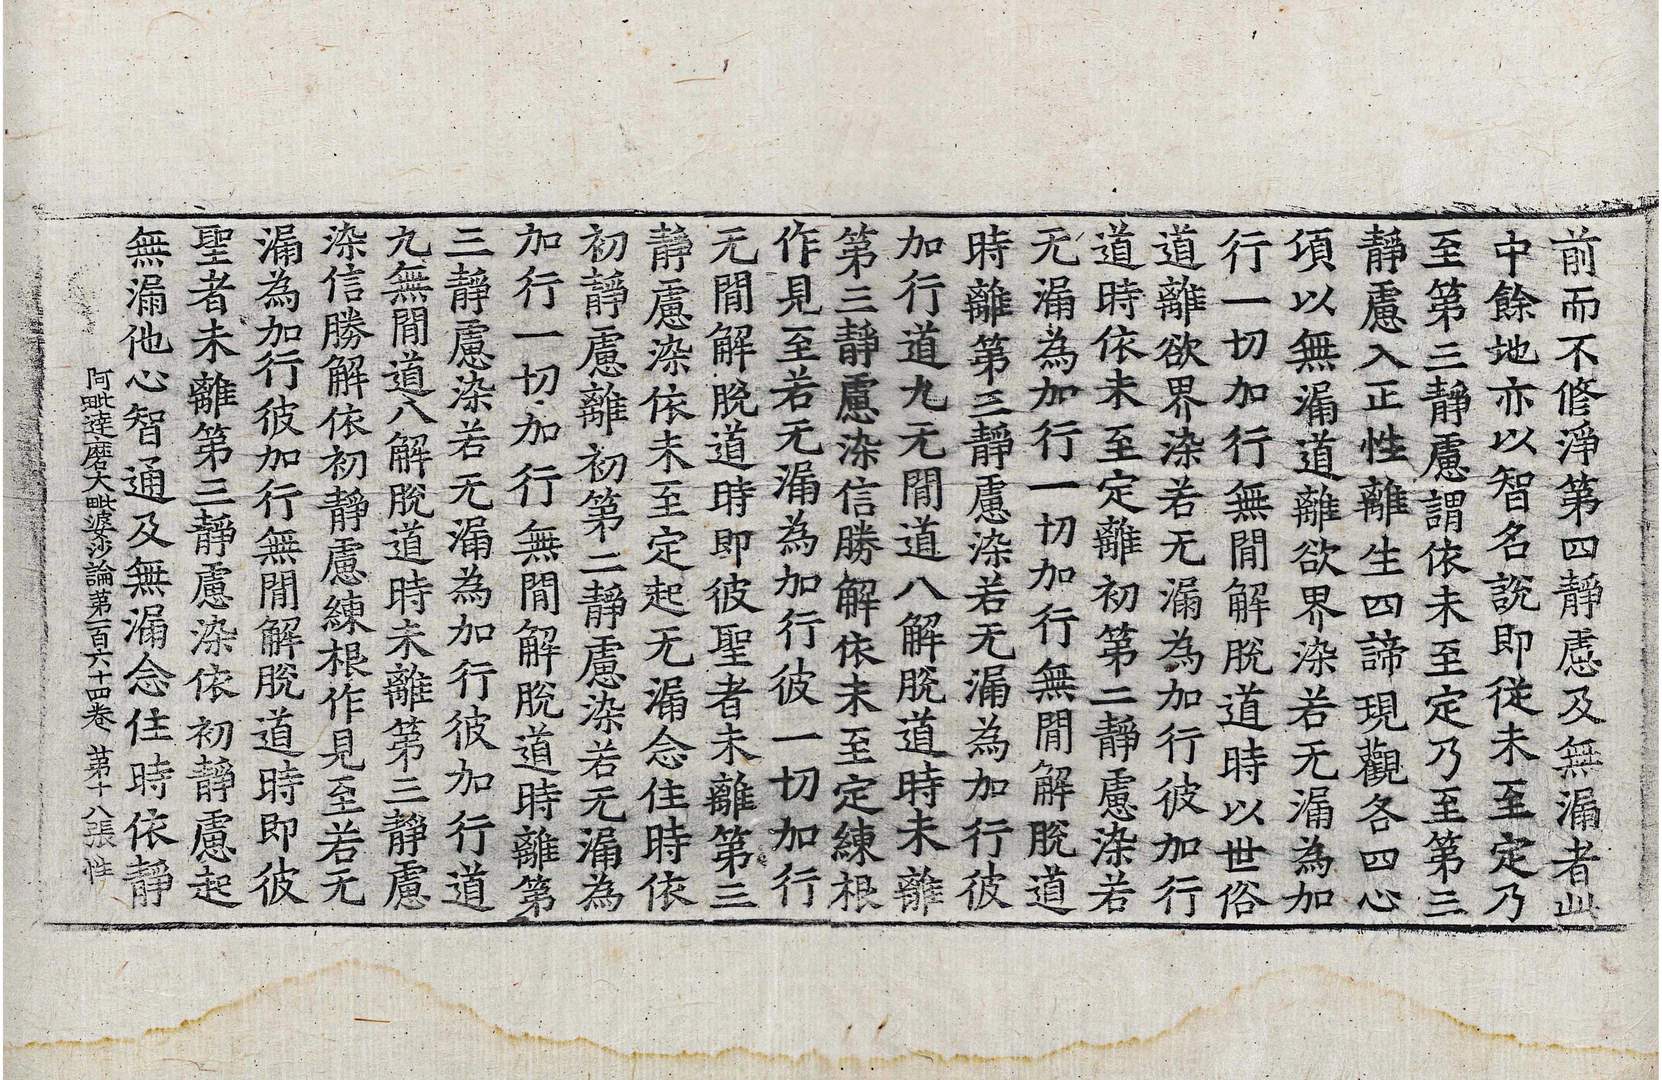 前而不修淨第四靜慮及無漏者此
中餘地亦以智名說即從未至定乃
至第三靜慮謂依未至定乃至第三
靜慮入正性離生四諦現觀各四心
頃以無漏道離欲界染若无漏為加
行一切加行無間解脫道時以世俗
道離欲界染若无漏為加行彼加行
道時依未至定離初第二靜慮染若
无漏為加行一切加行無間解脫道
時離第三靜慮染若无漏為加行彼
加行道九无間道八解脫道時未離
第三靜慮染信勝解依未至定練根
作見至若无漏為加行彼一切加行
无間解脫道時即彼聖者未離第三
靜慮染依未至定起无漏念住時依
初靜慮離初第二靜慮染若无漏為
加行一切加行無間解脫道時離第
三靜慮染若无漏為加行彼加行道
九無間道八解脫道時未離第三靜慮
染信勝解依初靜慮練根作見至若无
漏為加行彼加行無間解脫道時即彼
聖者未離第三靜慮染依初靜慮起
無漏他心智通及無漏念住時依靜
阿毗達磨大毗婆沙論第一百六十四卷 第十八張 性